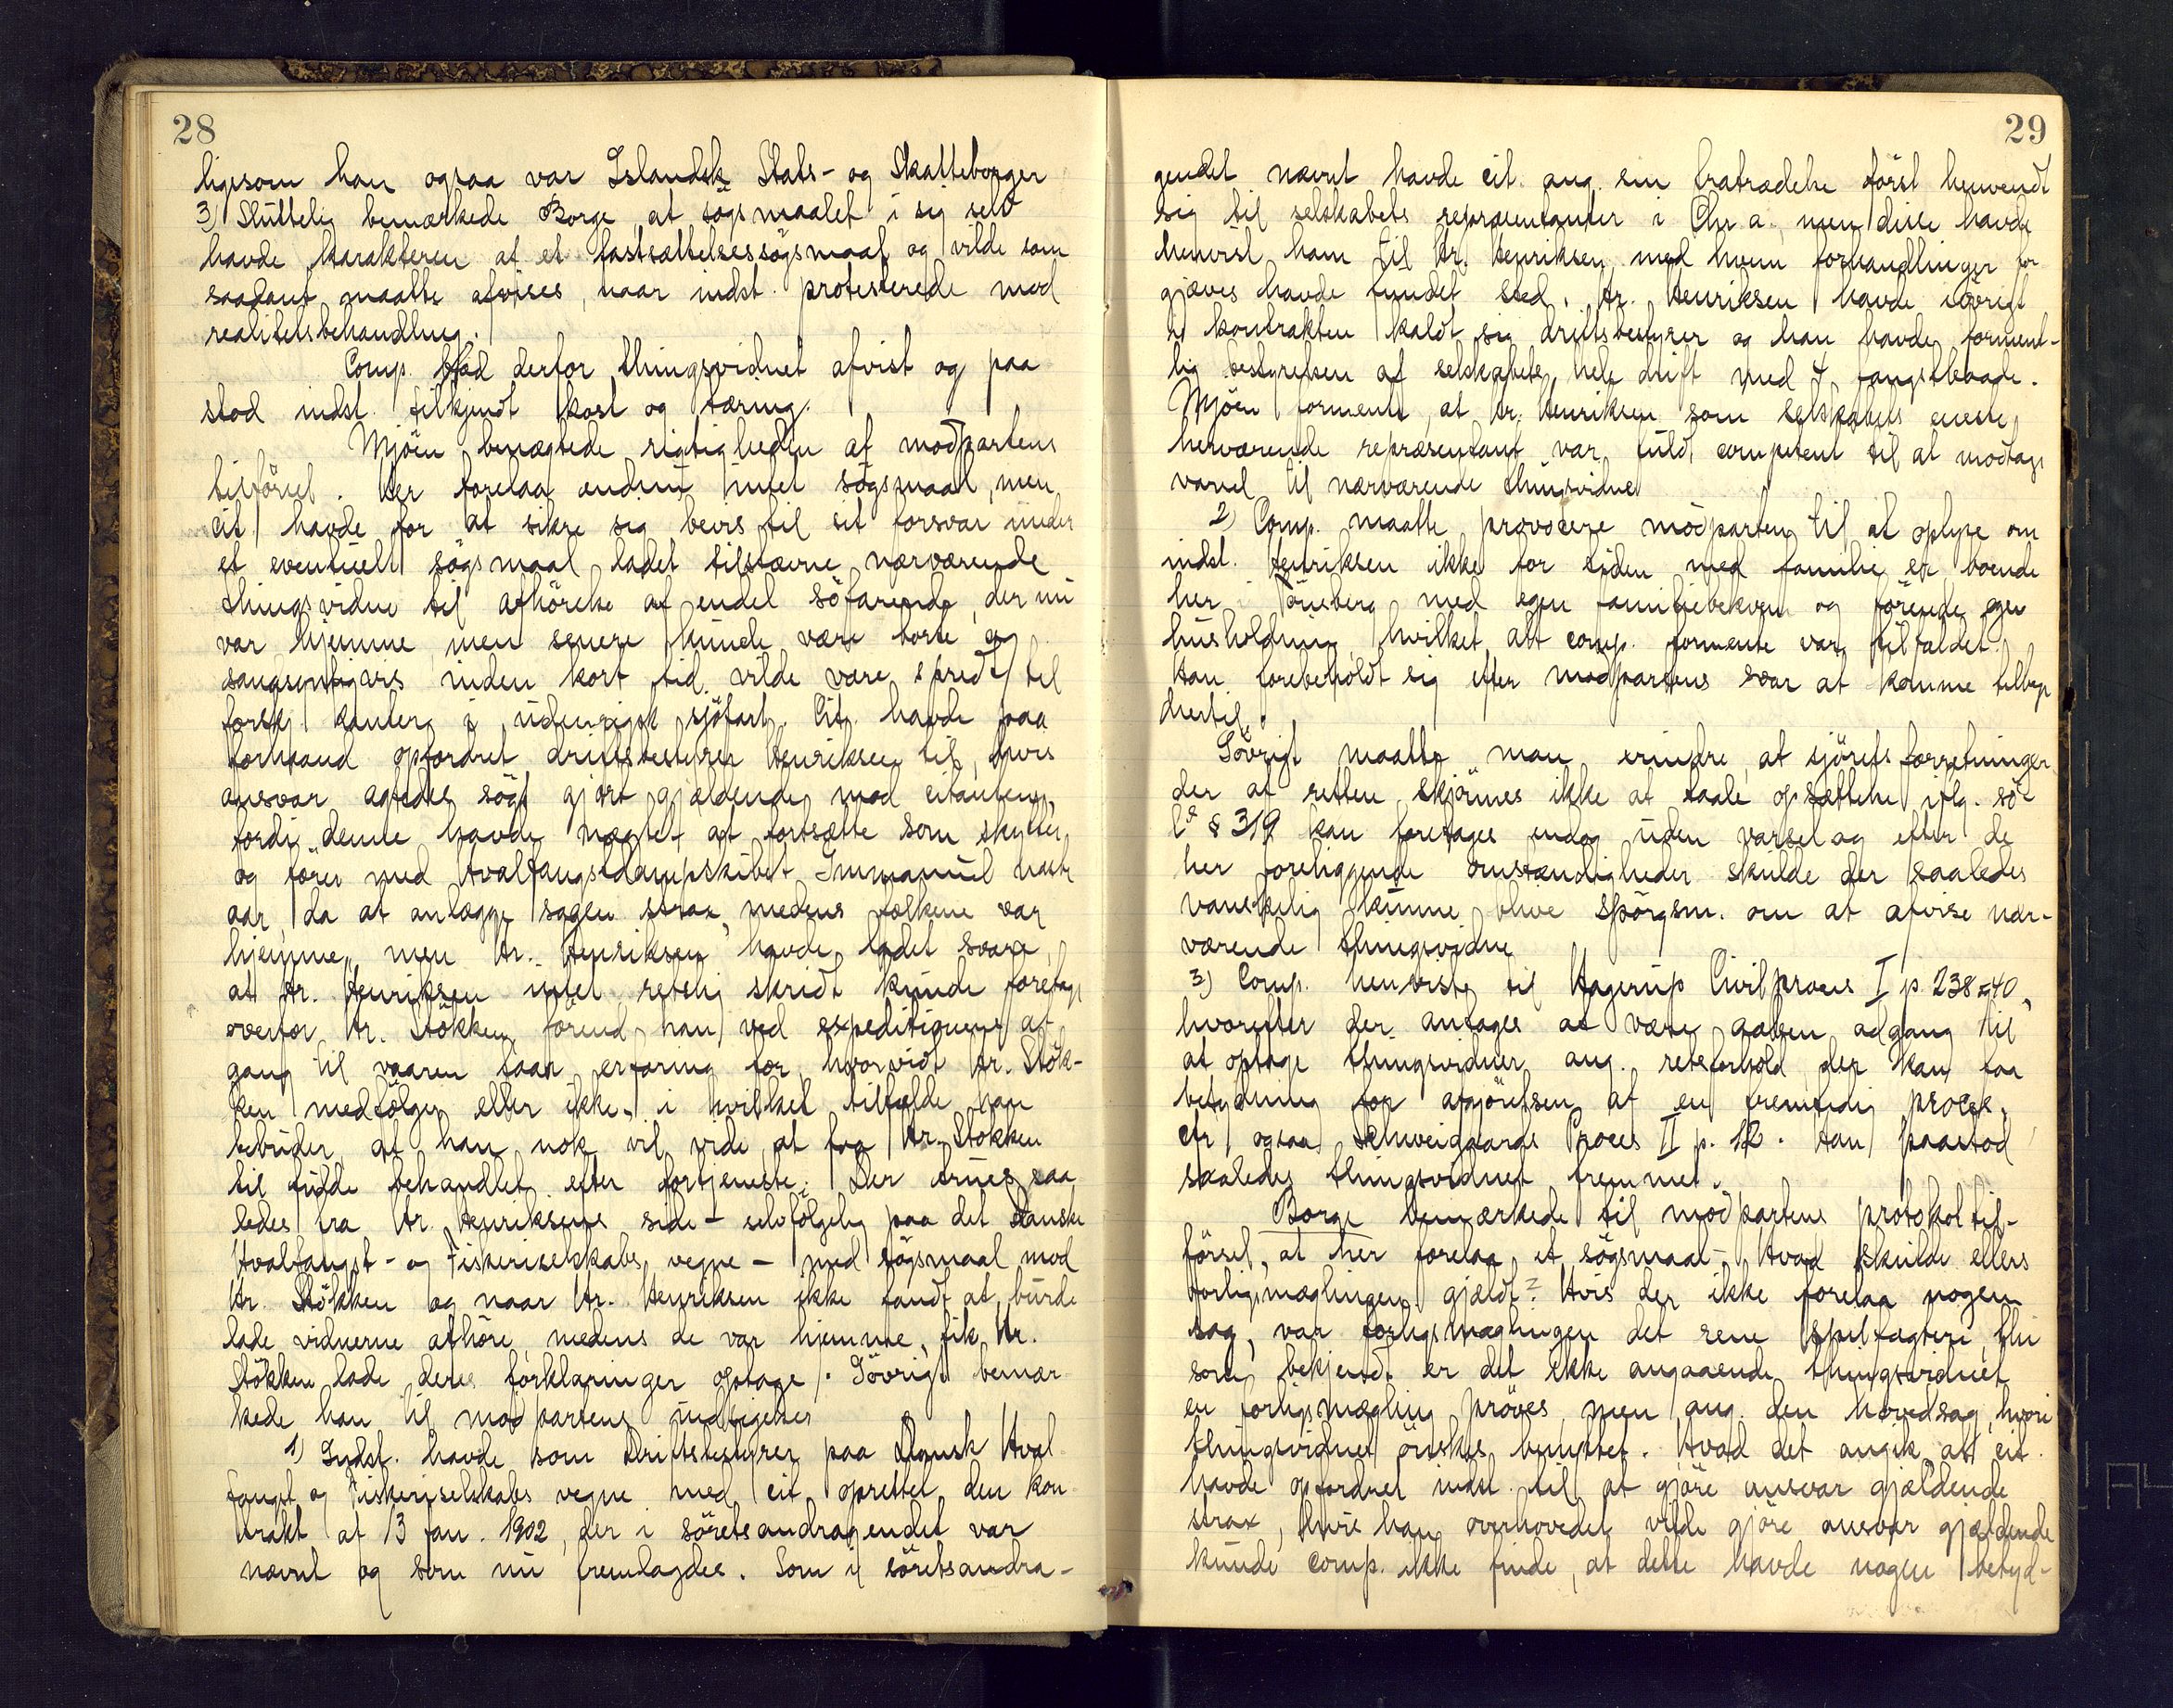 28
ligesom han ogsaa var Islandsk Stats- og Skatteborger
3) Sluttelig bemærkede Borge at søgsmaalet i sig selv
havde karakteren af et fastsættelsessøgsmaal og vilde som
saadant maatte afvises, naar indst. protesterede mod
realitetsbehandling.
Comp. bad derfor thingsvidnet afvist og paa
stod indst. tilkjendt kost og tæring.
Mjöen benægtede rigtigheden af modpartens
tilförsel. Her forelaa endnu intet sögsmaal, men
cit. havde for at sikre sig bevis til sit forsvar under
et eventuelt sögsmaal ladet tilstævne nærværende
thingsvidne til afhörelse af endel söfarende, der nu
var hjemme, men senere kunde være borte og
sandsynligvis inden kort tid vilde være spredt til
forskj. kanter i udenrigsk sjöfart. Cit. havde paa
forhaand opfordret driftsbestyrer Henriksen til, hvis
ansvar agtedes sögt gjort gjældende mod citanten,
fordi denne havde nægtet at fortsætte som skytter
og förer med Hvalfangstdampskibet Immanuel næste
aar, da at anlægge sagen strax, medens folkene var
hjemme, men Hr. Henriksen havde ladet svare,
at Hr. Henriksen intet retslig skridt kunde foretage
overfor Hr. Stökken, förend han ved expeditionens af-
gang til vaaren faar erfaring for, hvorvidt Hr. Stök-
ken medfölger eller ikke, i hvilket tilfælde han
bebuder, at han nok vil vide at faa Hr. Stökken
til fulde behandlet efter fortjeneste. Der trues saa
ledes fra Hr. Henriksens side - selvfölgelig paa det danske
Hvalfangst- og Fiskeriselskabs vegne - med sögsmaal mod
Hr. Stökken og naar Hr. Henriksen ikke fandt at burde
lade vidnerne afhöre, medens de var hjemme, fik Hr.
Stökken lade deres forklaringer optage. Iövrigt bemær
kede han til modpartens indsigelser
1) Indst. havde som driftsbestyrer paa Dansk Hval
fangst og Fiskeriselskabs vegne med cit oprettet den kon
trakt af 13 jan. 1902, der i söretsandragendet var
nævnt og som nu fremlagdes. Som i söretsandra-
29
gendet nævnt havde cit. ang. sin fratrædelse först henvendt
sig til selskabets repræsentanter i Chr a., men disse havde
henvist ham til Hr. Henriksen, med hvem forhandlinger for
gjæves havde fundet sted. Hr. Henriksen havde iövrigt
i kontrakten kaldt sig driftsbestyrer og han havde forment-
lig bestyrelsen af selskabets hele drift med 4 fangstbaade.
Mjöen formente, at Hr. Henriksen som selskabets eneste
herværende repræsentant var fuldt competent til at modtage
varsel til nærværende thingsvidne
2) Comp. maatte provocere modparten til at oplyse om
indst. Henriksen ikke for tiden med familie er boende
her i Tönsberg med egen familiebekvem og förende egen
husholdning, hvilket alt comp. formente var tilfældet.
Han forebeholdt sig efter modpartens svar at komme tilbage
hertil.
Iövrigt maatte man erindre, at sjöretsforretninger
der af retten skjönnes ikke at taale opsættelse iflg. sö-
l. § 319 kan foretages endog uden varsel og efter de
her foreliggende omstændigheder skulde der saaledes
vanskelig kunne blive spörgsm. om at afvise nær-
værende thingsvidne
3) Comp. henviste til Hagerup Civilproces I p. 238-40,
hvorefter der antages at være aaben adgang til
at optage thingsvidner ang. retsforhold, der kan faa
betydning for afgjörelsen af en fremtidig proces.
Cfr ogsaa Schweigaards Proces II p. 12. Han paastod
saaledes thingsvidnet fremmet.
Borge bemærkede til modpartens protokoltil-
försel, at her forelaa et sögsmaal - Hvad skulde ellers
forligsmæglingen gjældt? Hvis der ikke forelaa nogen
sag, var forligsmæglingen det rene spilfægteri, thi
som bekjendt er det ikke angaaende thingsvidnet
en forligsmægling pröves, men ang. den hovedsag, hvori
thingsvidnet önskes benyttet. Hvad det angik, at cit.
havde opfordret indst. til at gjöre ansvar gjældende
strax, hvis han overhovedet vilde gjöre ansvar gjældende
kunde comp. ikke finde, at dette havde nogen betyd-